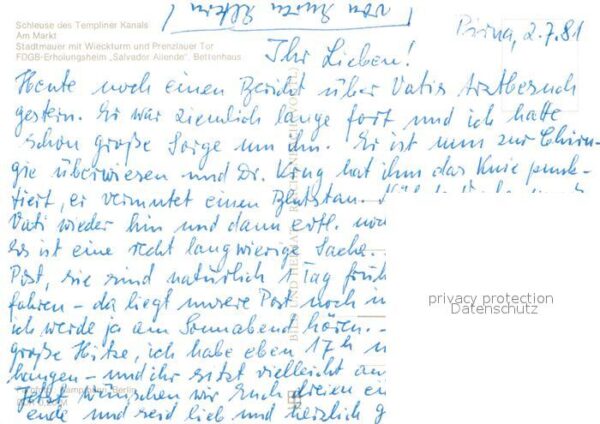 Schleuse des Templiner Kanals
Am Markt
Stadtmauer mit Wieckturm und Prenzlauer Tor
FDGB-Erholungsheim „Salvador Allende“, Bettenhaus
(von Euren Eltern)
Pirna, 2.7.81
Ihr Lieben!
Heute noch einen Bericht über Vatis Arztbesuch
gestern. Er war ziemlich lange fort und ich hatte
schon große Sorge um ihn. Er ist nun zur Chirur-
gie überwiesen und Dr. Krug hat ihm das Knie punk-
tiert, er vermutet einen Blutstau.
Vati wieder hin und dann evtl. noch
Es ist eine recht langwierige Sache.
Post, sie sind natürlich 1 Tag früh
fahren – da liegt unsere Post noch
ich werde ja am Sonnabend hören. –
große Hitze, ich habe eben 17 h
hangen – und ihr sitzt vielleicht an
Jetzt wünschen wir Euch dreien ein
ende und seid lieb und herzlich g
BILD UND HEIMAT
Berlin
privacy protection
Datenschutz